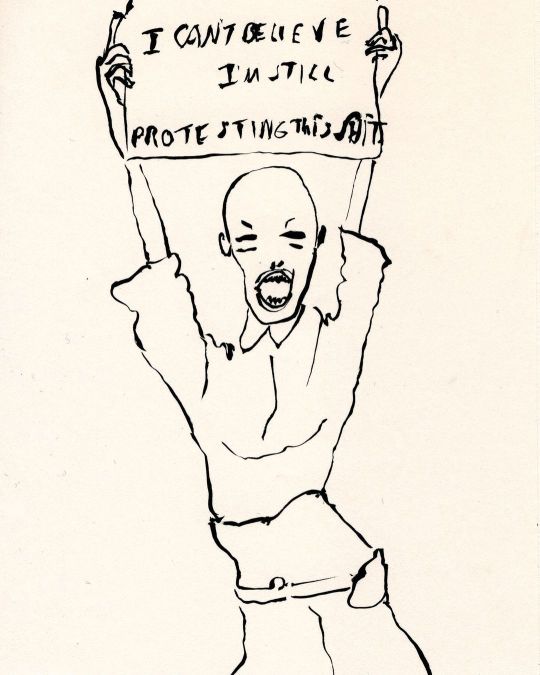 I CANT BELIEVE
I'M STILL
PROTESTING THiS SHiT